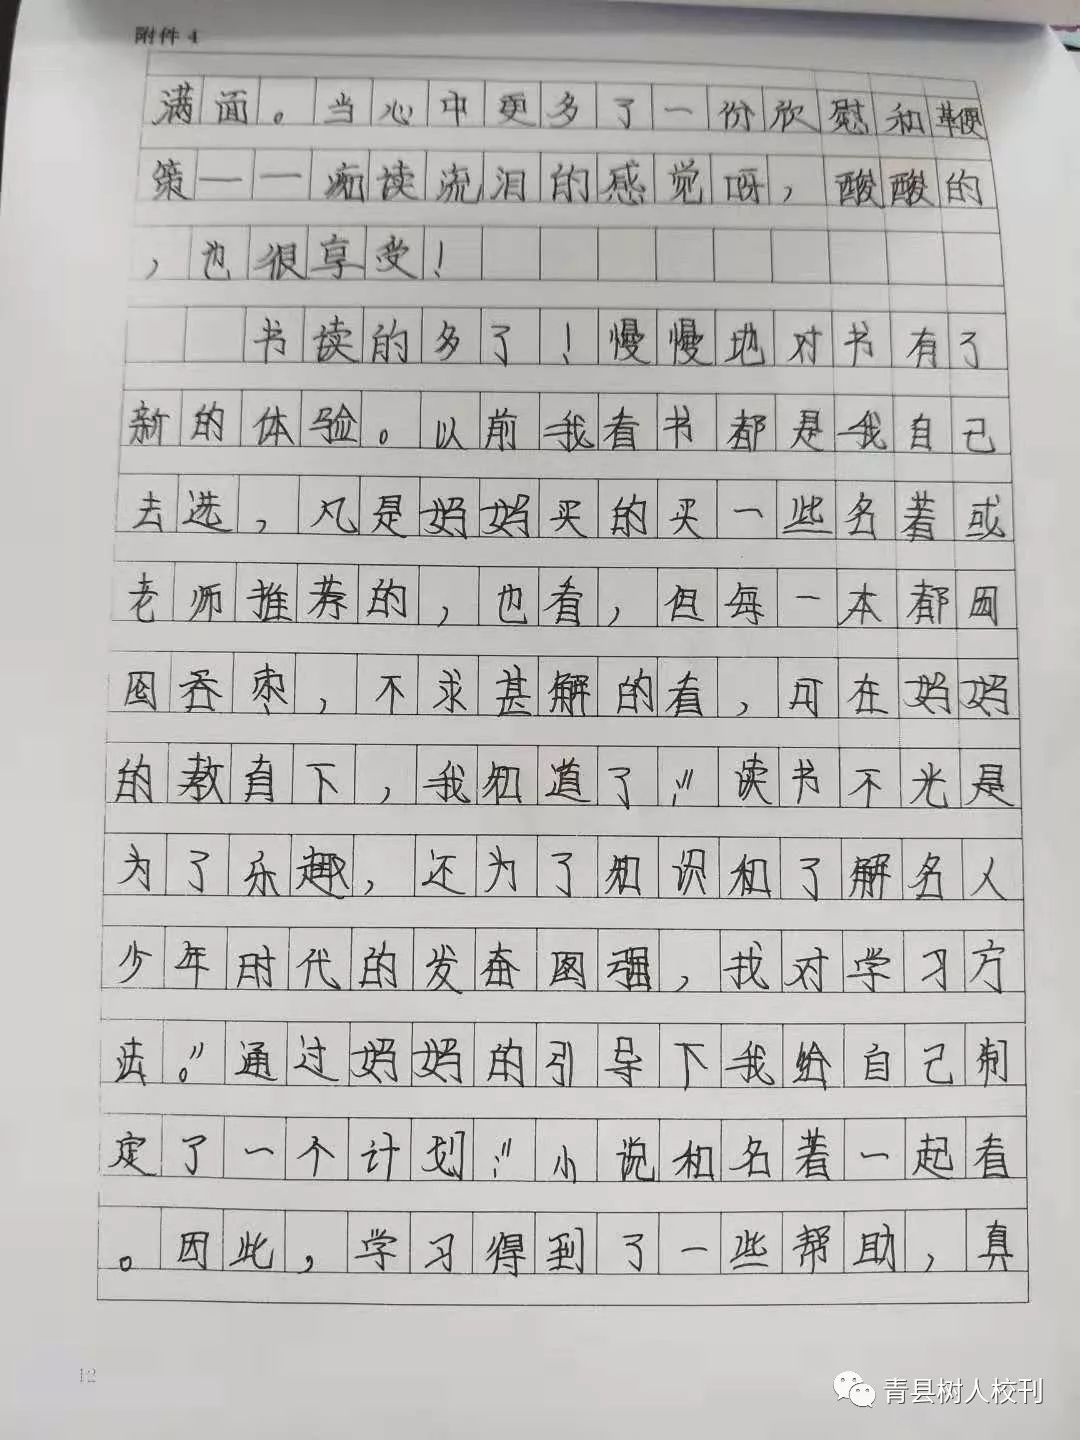 附件 4
满面。当心中更多了一份欣慰和鞭
策——痴读流泪的感觉呀，酸酸的
，也很享受！
书读的多了！慢慢地对书有了
新的体验。以前我看书都是我自己
去选，凡是妈妈买的买一些名著或
老师推荐的，也看，但每一本都囫
囵吞枣，不求甚解的看，可在妈妈
的教育下，我知道了:“读书不光是
为了乐趣，还为了知识和了解名人
少年时代的发奋图强，找对学习方
法。”通过妈妈的引导下我给自己制
定了一个计划:“小说和名著一起看
。因此，学习得到了一些帮助，真
12
青县树人校刊